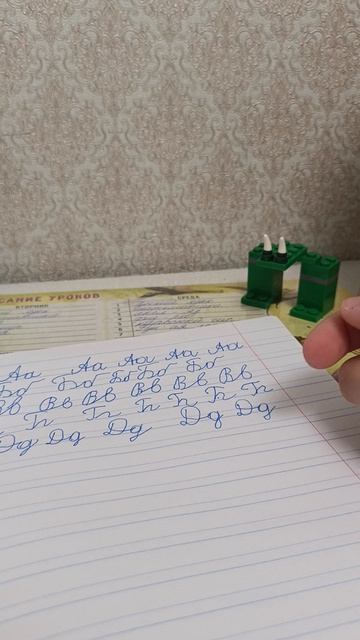 САНИЕ УРОКОВ
ВТОРНИК СРЕДА
Аа Аа Аа Аа Аа
Бб Бб Бб Бб Бб
Вв Вв Вв Вв Вв Вв
Гг Гг Гг Гг Гг Гг
Дд Дд Дд Дд Дд